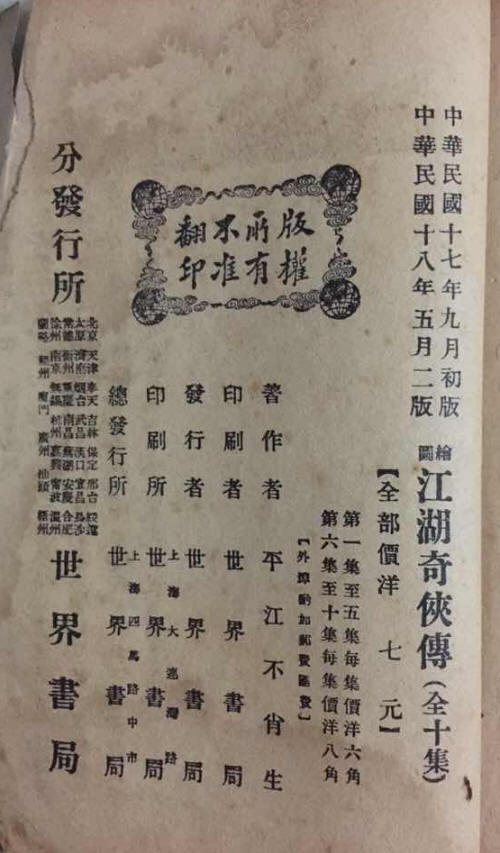 中華民國十七年九月初版
中華民國十八年五月二版
繪圖
江湖奇俠傳(全十集)
【全部價洋七元】
第一集至五集每集價洋六角
第六集至十集每集價洋八角
【外埠酌加郵費匯費】
版權
所有
不准
翻印
著作者 平江不肖生
印刷者 世界書局
發行者 世界書局
印刷所 上海大連灣路 世界書局
總發行所 上海四馬路中市 世界書局
分發行所
北京 天津 奉天 吉林 保定 邢台 綏遠
太原 濟南 烟台 武昌 漢口 宜昌 長沙
常德 衡州 重慶 南昌 蕪湖 安慶 合肥
徐州 南京 無錫 杭州 嘉興 甯波 溫州
蘭谿 廈門 廣州 汕頭 梧州
世界書局